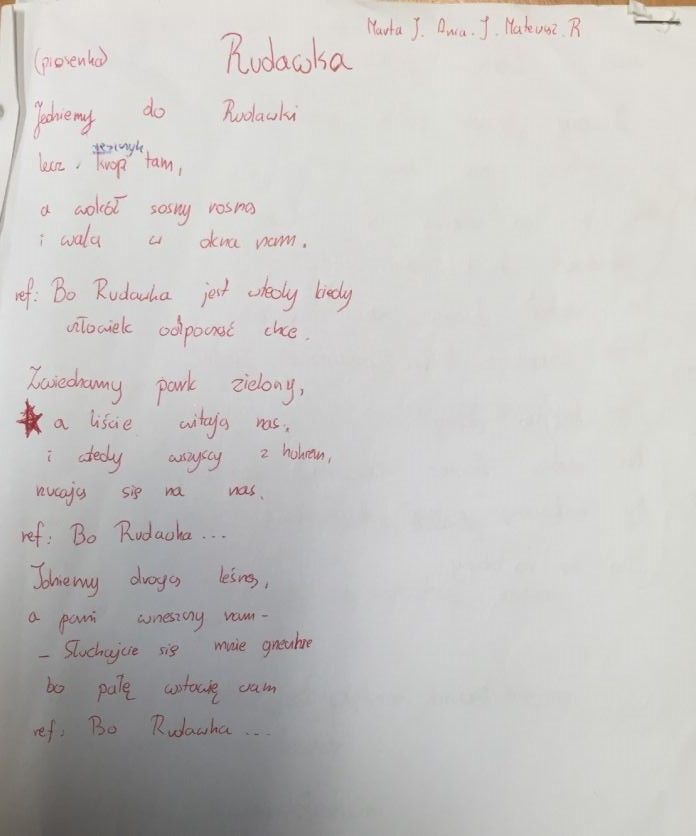 Marta J. Ania. J. Mateusz. R
(piosenka) Rudawka
Jedziemy do Rudawki
lecz tam,
a wokół sosny rosną
i walą w okna nam.
ref: Bo Rudawka jest wtedy kiedy
człowiek odpocząć chce.
Zwiedzamy park zielony,
a liście witają nas,
i wtedy wszyscy z hukiem,
rzucają się na nas.
ref: Bo Rudawka ...
Idziemy drogą leśną,
a pani wrzeszczy nam -
- Słuchajcie się mnie grzecznie
bo pałę wstawię wam
ref: Bo Rudawka ...